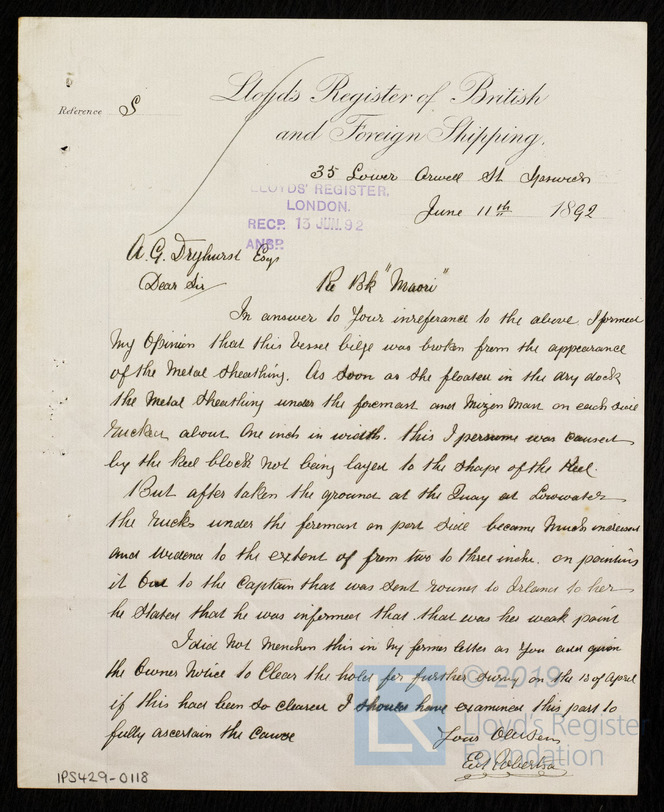 Lloyd's Register of British
and Foreign Shipping.
Reference S
35 Lower Orwell St Ipswich
June 11th 1892
LLOYDS' REGISTER.
LONDON.
RECD. 13 JUN. 92
ANSD.
A. G. Dryhurst Esqr
Dear Sir
Re Bk "Maori"
In answer to Your inreferance to the above I formed
My Opinion that this Vessel bilge was broken from the appearance
of the Metal sheathing. As soon as she floated in the dry dock
the Metal sheathing under the foremast and Mizon Mast on each side
rucked about One inch in width. this I persume was caused
by the keel block not being layed to the shape of the Keel.
But after taken the ground at the Quay at Lowwater
the rucks under the foremast on port side became Much increased
and widend to the extent of from two to three inch. on pointing
it out to the Captain that was sent round to Irland to her
he stated that he was informed that that was her weak point
I did Not Menchen this in My former letter as You had given
the Owner Notice to Clear the hold for further survey on the 13 of April
if this had been so cleared I should have examined this part to
fully ascertain the Cause
Yours Obedien
Robertson
IPS429-0118
© 2019
LR
Lloyd's Register
Foundation